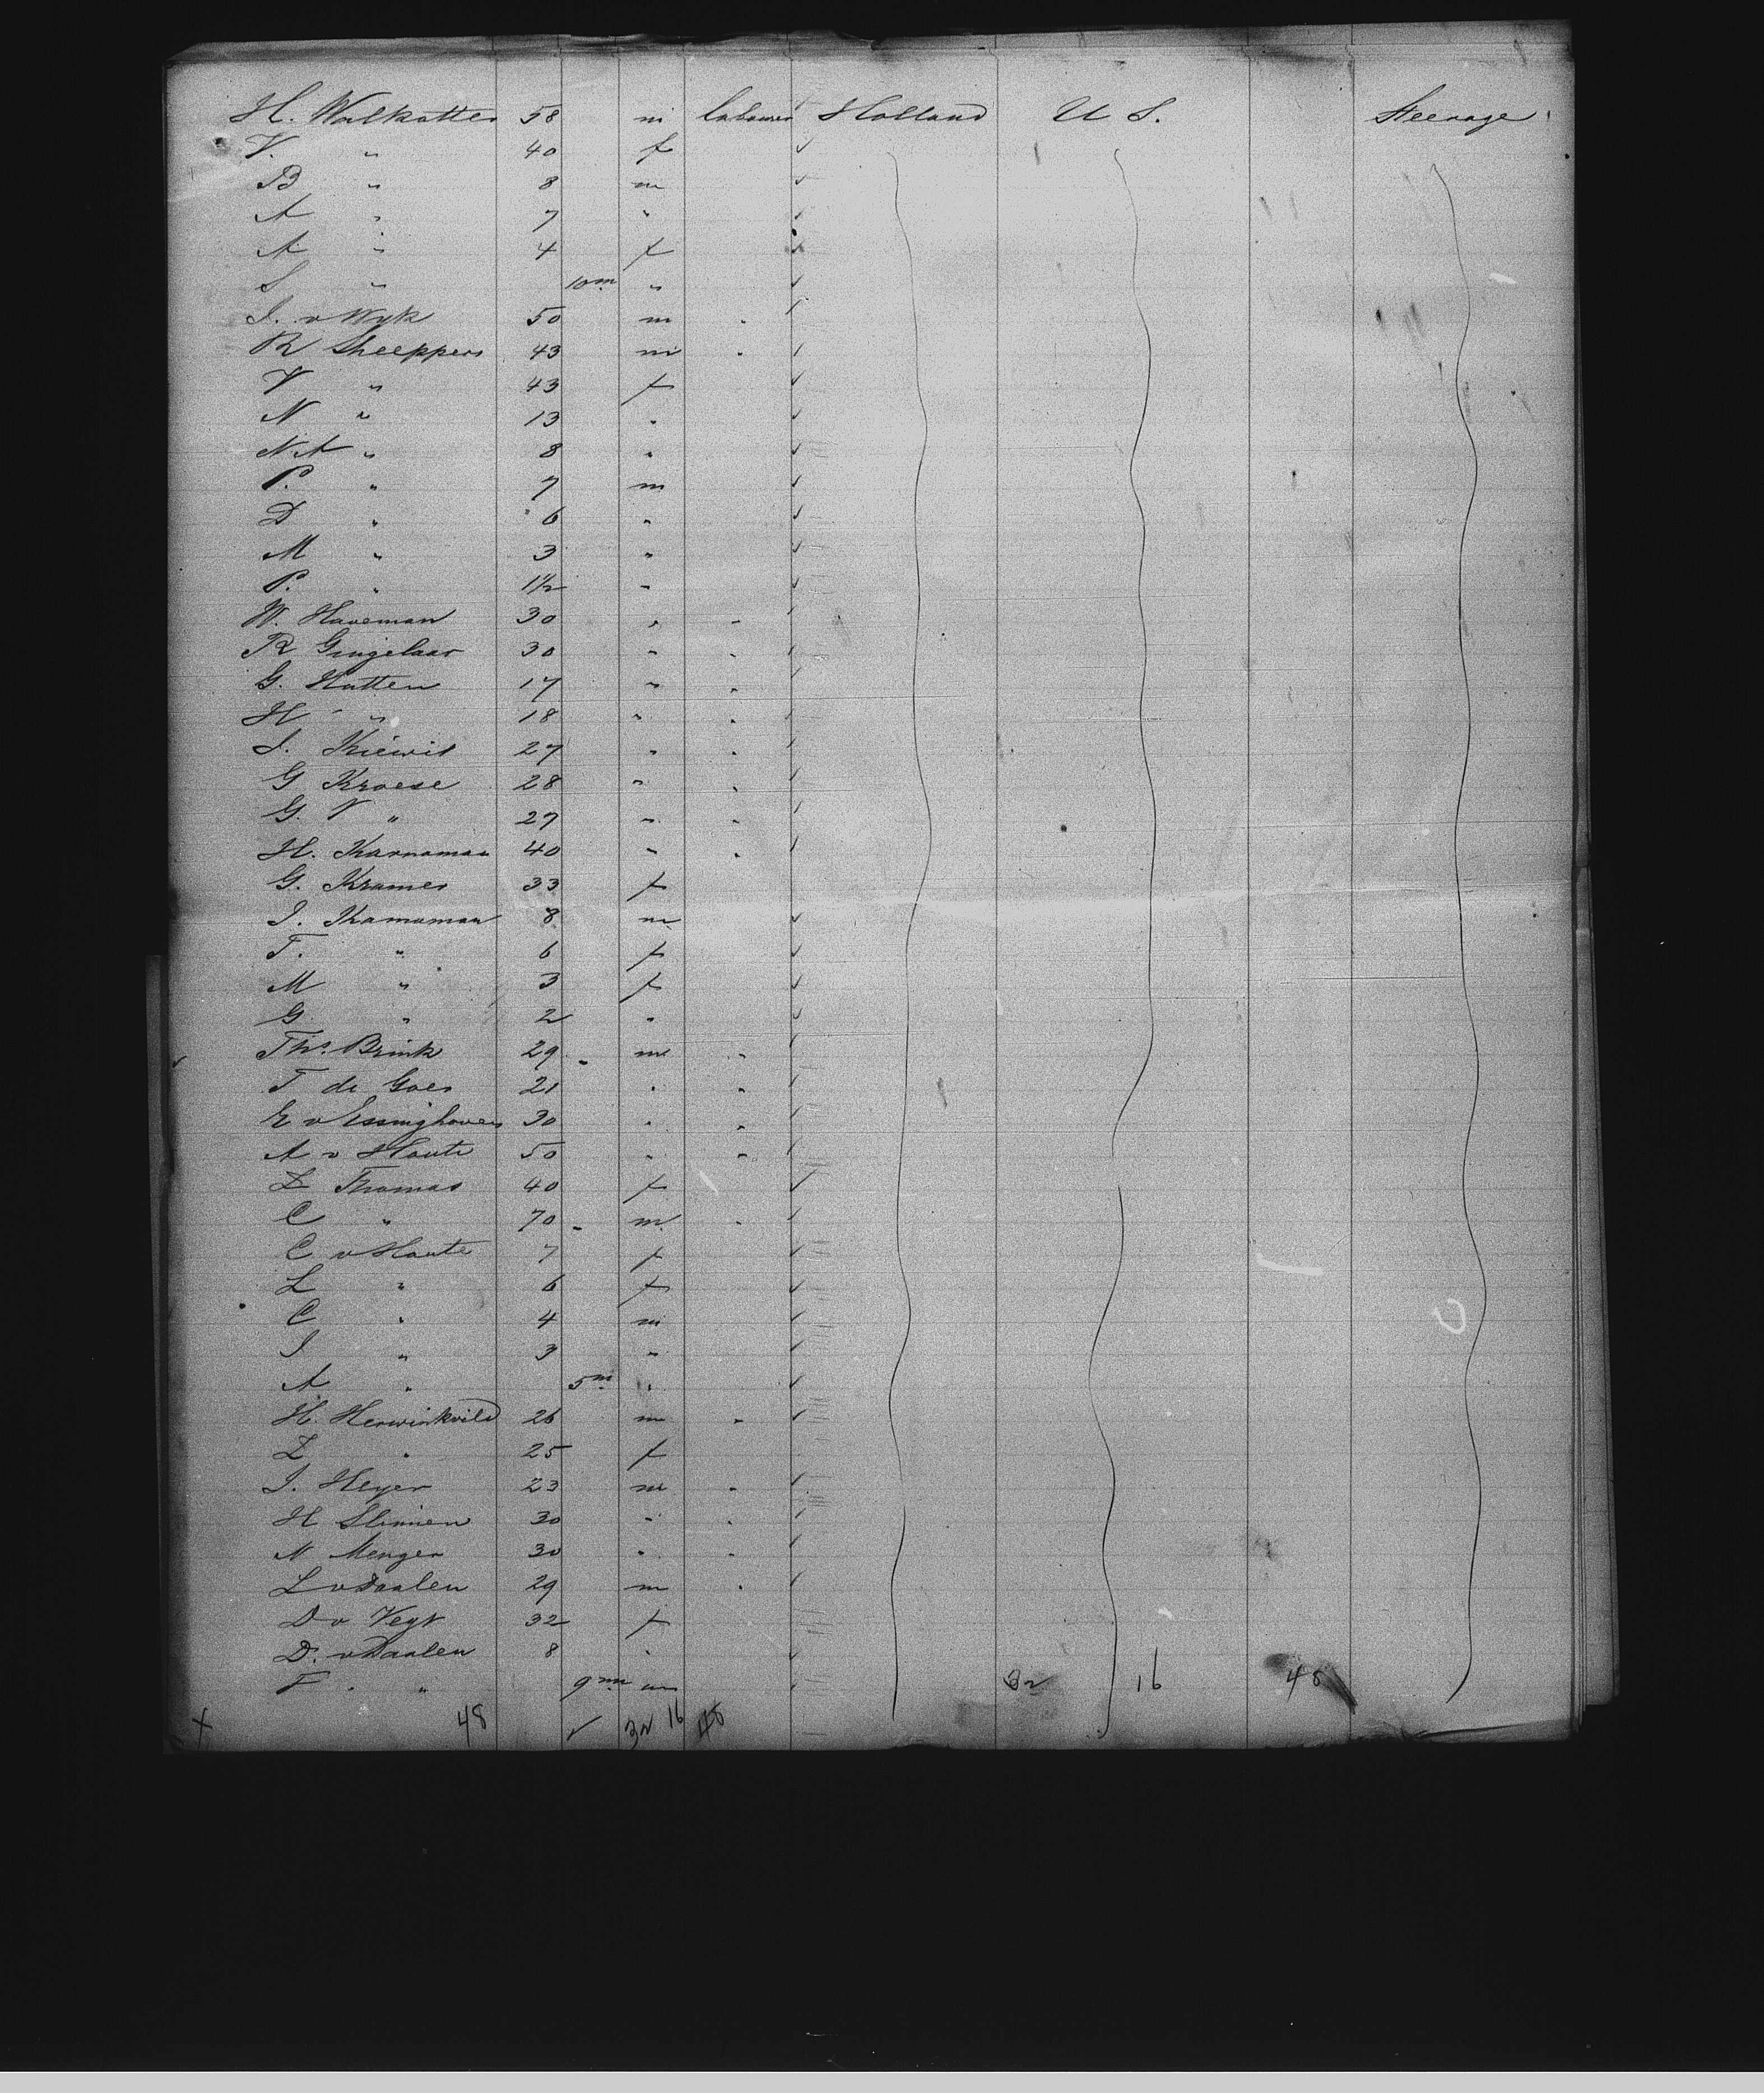 H. Walkotter 58 m labourer Holland U S. Steerage
V. " 40 f
B " 8 m
A " 7 "
A " 4 f
S " 10m "
J. v Wyk 50 m "
R Sheeppers 43 m "
V " 43 f
N " 13 "
N A " 8 "
P. " 7 m
D " 6 "
M " 3 "
P. " 1½ "
W. Haveman 30 " "
R Gingelaar 30 " "
G. Hutten 17 " "
H " 18 " "
J. Kiewit 27 " "
G Kroese 28 " "
G. V " 27 " "
H. Karnaman 40 " "
G. Kramer 33 f
J. Kamaman 8 m
T. " 6 f
M " 3 f
G. " 2 "
Ths. Brink 29 " m "
T de Goes 21 " "
E v Essinghoven 30 " "
A v Houte 50 " "
Z Thomas 40 f
C " 70 " m "
C v Houte 7 f
L " 6 f
C " 4 m
J " 3 "
A " 5m "
H. 26 m "
Z " 25 f
J. Heyer 23 m "
H Slimen 30 " "
N Menger 30 " "
L v Daalen 29 m "
D v Vegt 32 f
D. v Daalen 8 "
F. " 9m m 32 16 48
48 32 16 48